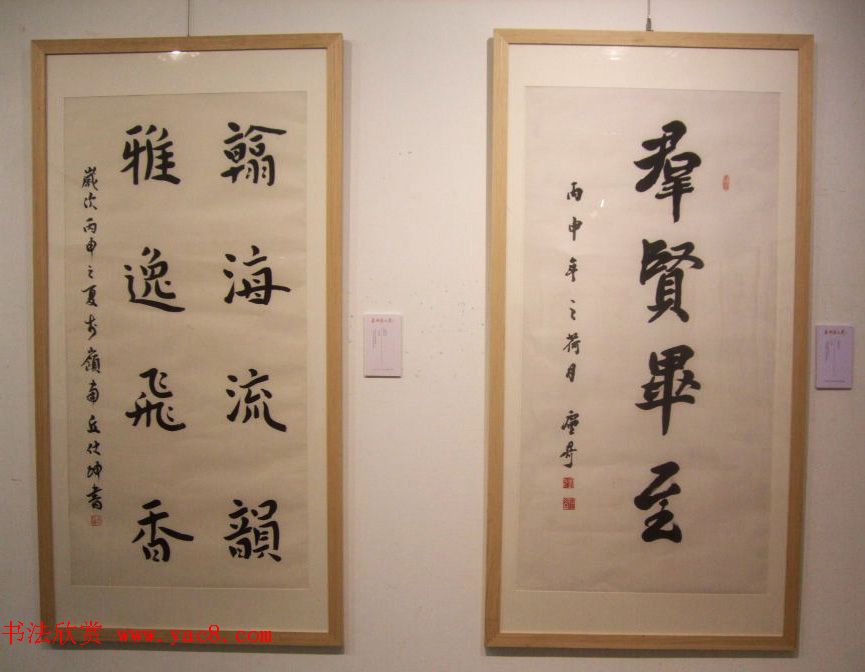 翰海流韻
雅逸飛香
歲次丙申之夏於嶺南丘仕坤書
羣賢畢至
丙申年之荷月
书法欣赏 www.yac8.com